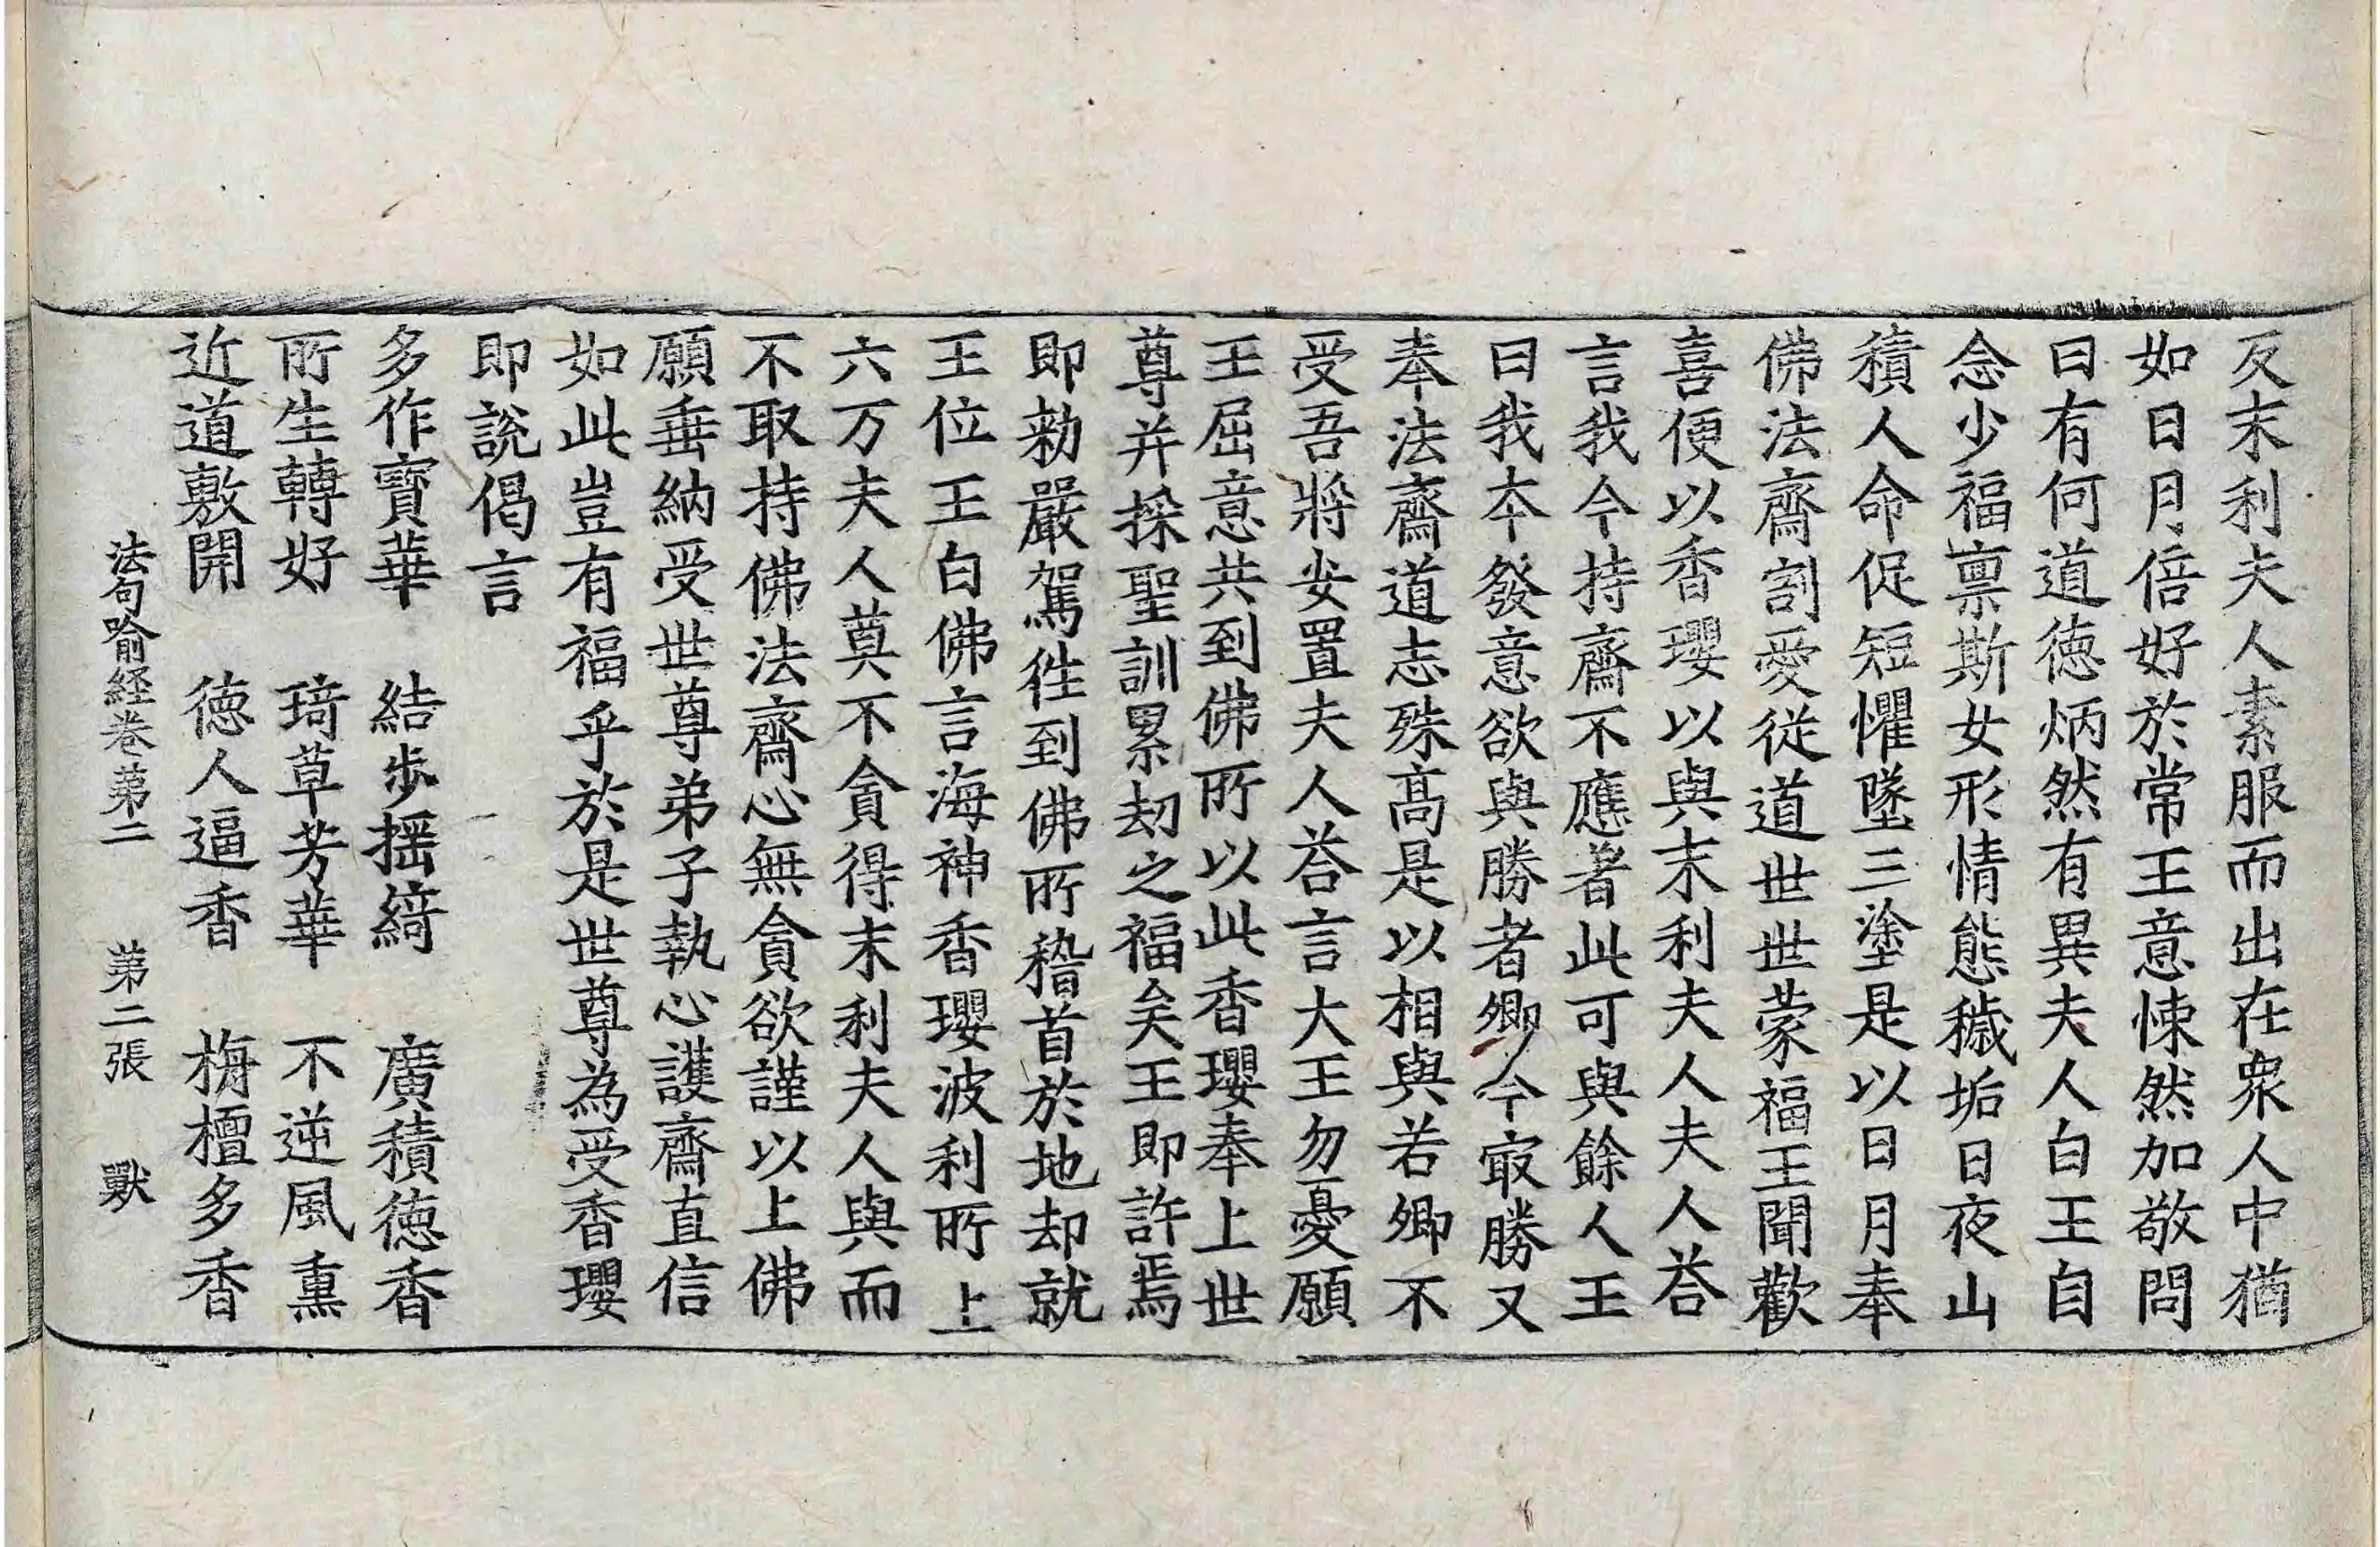 反末利夫人素服而出在衆人中猶
如日月倍好於常王意悚然加敬問
曰有何道徳炳然有異夫人白王自
念少福禀斯女形情態穢垢日夜山
積人命促短懼墜三塗是以日月奉
佛法齋割愛従道世世蒙福王聞歡
喜便以香瓔以與末利夫人夫人荅
言我今持齋不應著此可與餘人王
曰我本發意欲與勝者卿今㝡勝又
奉法齋道志殊髙是以相與若卿不
受吾將安置夫人荅言大王勿憂願
王屈意共到佛所以此香瓔奉上世
尊并採聖訓累劫之福矣王即許焉
即勑嚴駕徃到佛所稽首於地却就
王位王白佛言海神香瓔波利所上
六万夫人莫不貪得末利夫人與而
不取持佛法齋心無貪欲謹以上佛
願垂納受世尊弟子執心護齋直信
如此豈有福乎於是世尊為受香瓔
即說偈言
多作寶華　結歩揺綺　廣積徳香
所生轉好　琦草芳華　不逆風熏
近道敷開　徳人逼香　栴檀多香
法句喻經卷第二　第二張　獸